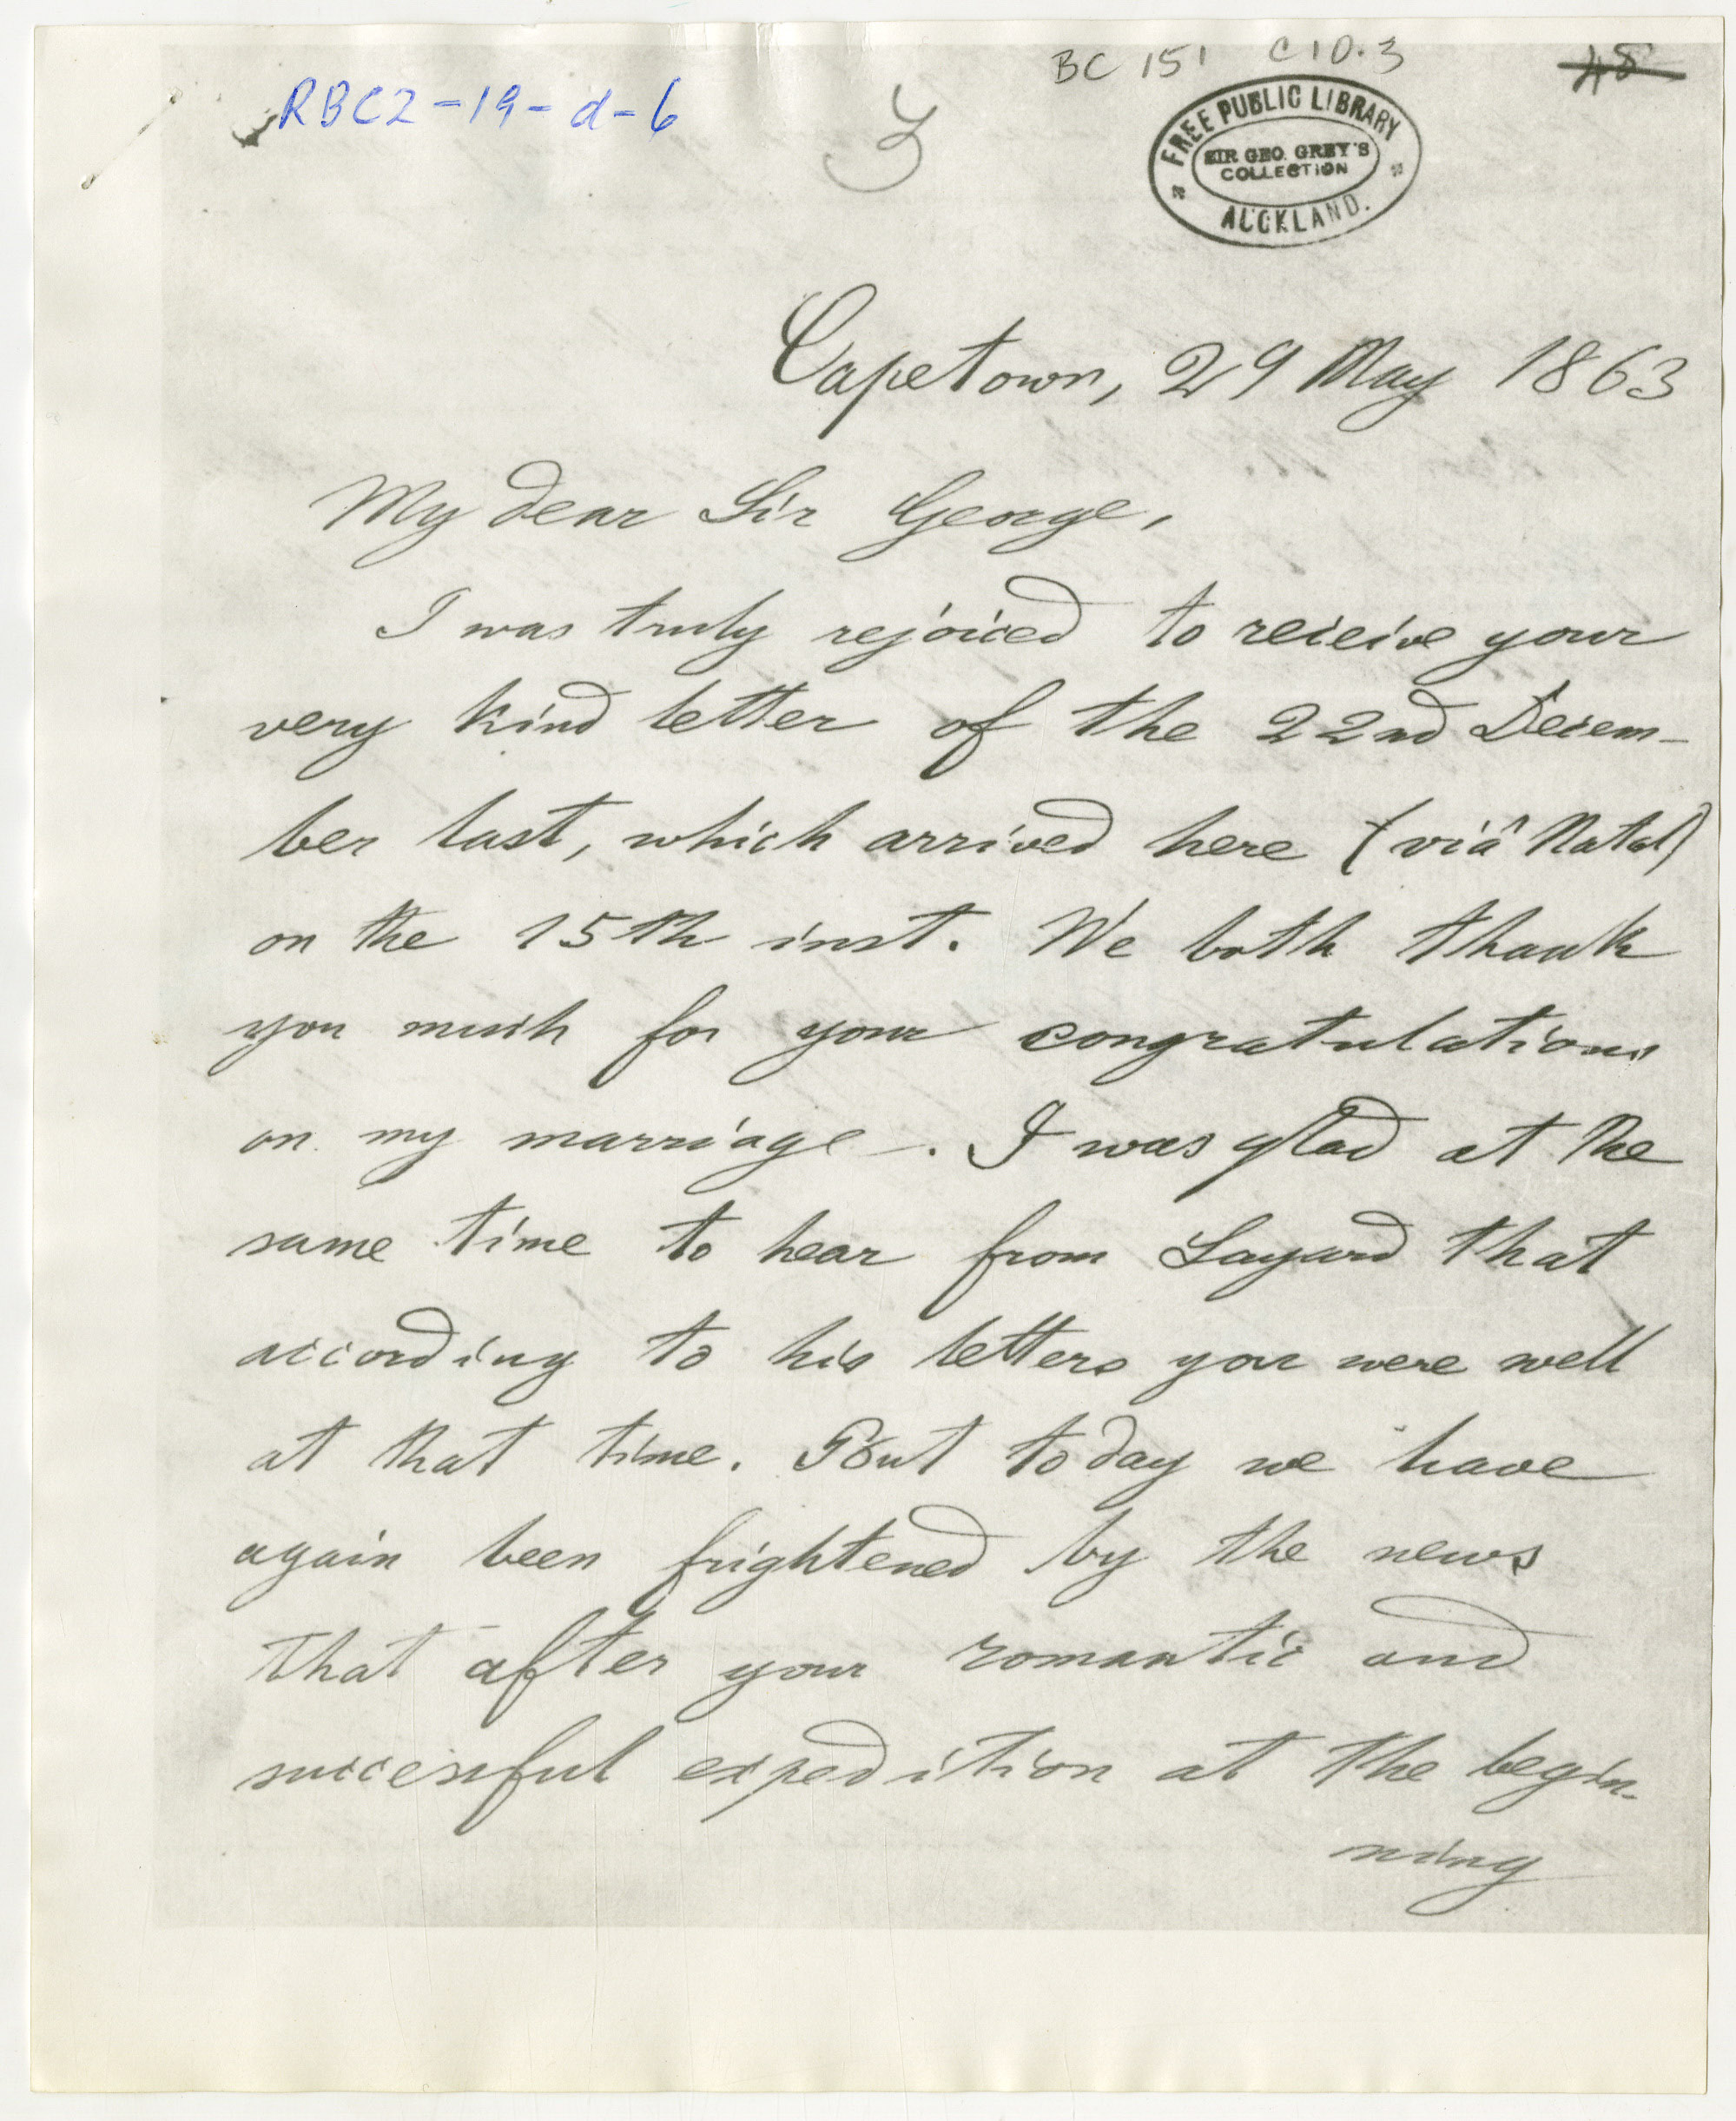 BC 151 C10.3
48
RBC2-19-d-6
3
FREE PUBLIC LIBRARY
SIR GEO. GREY'S
COLLECTION
AUCKLAND.
Capetown, 29 May 1863
My dear Sir George,
I was truly rejoiced to receive your
very kind letter of the 22nd Decem-
ber last, which arrived here (viâ Natal)
on the 15th inst. We both thank
you much for your congratulations
on my marriage. I was glad at the
same time to hear from Layard that
according to his letters you were well
at that time. But today we have
again been frightened by the news
that after your romantic and
successful expedition at the begin-
ning